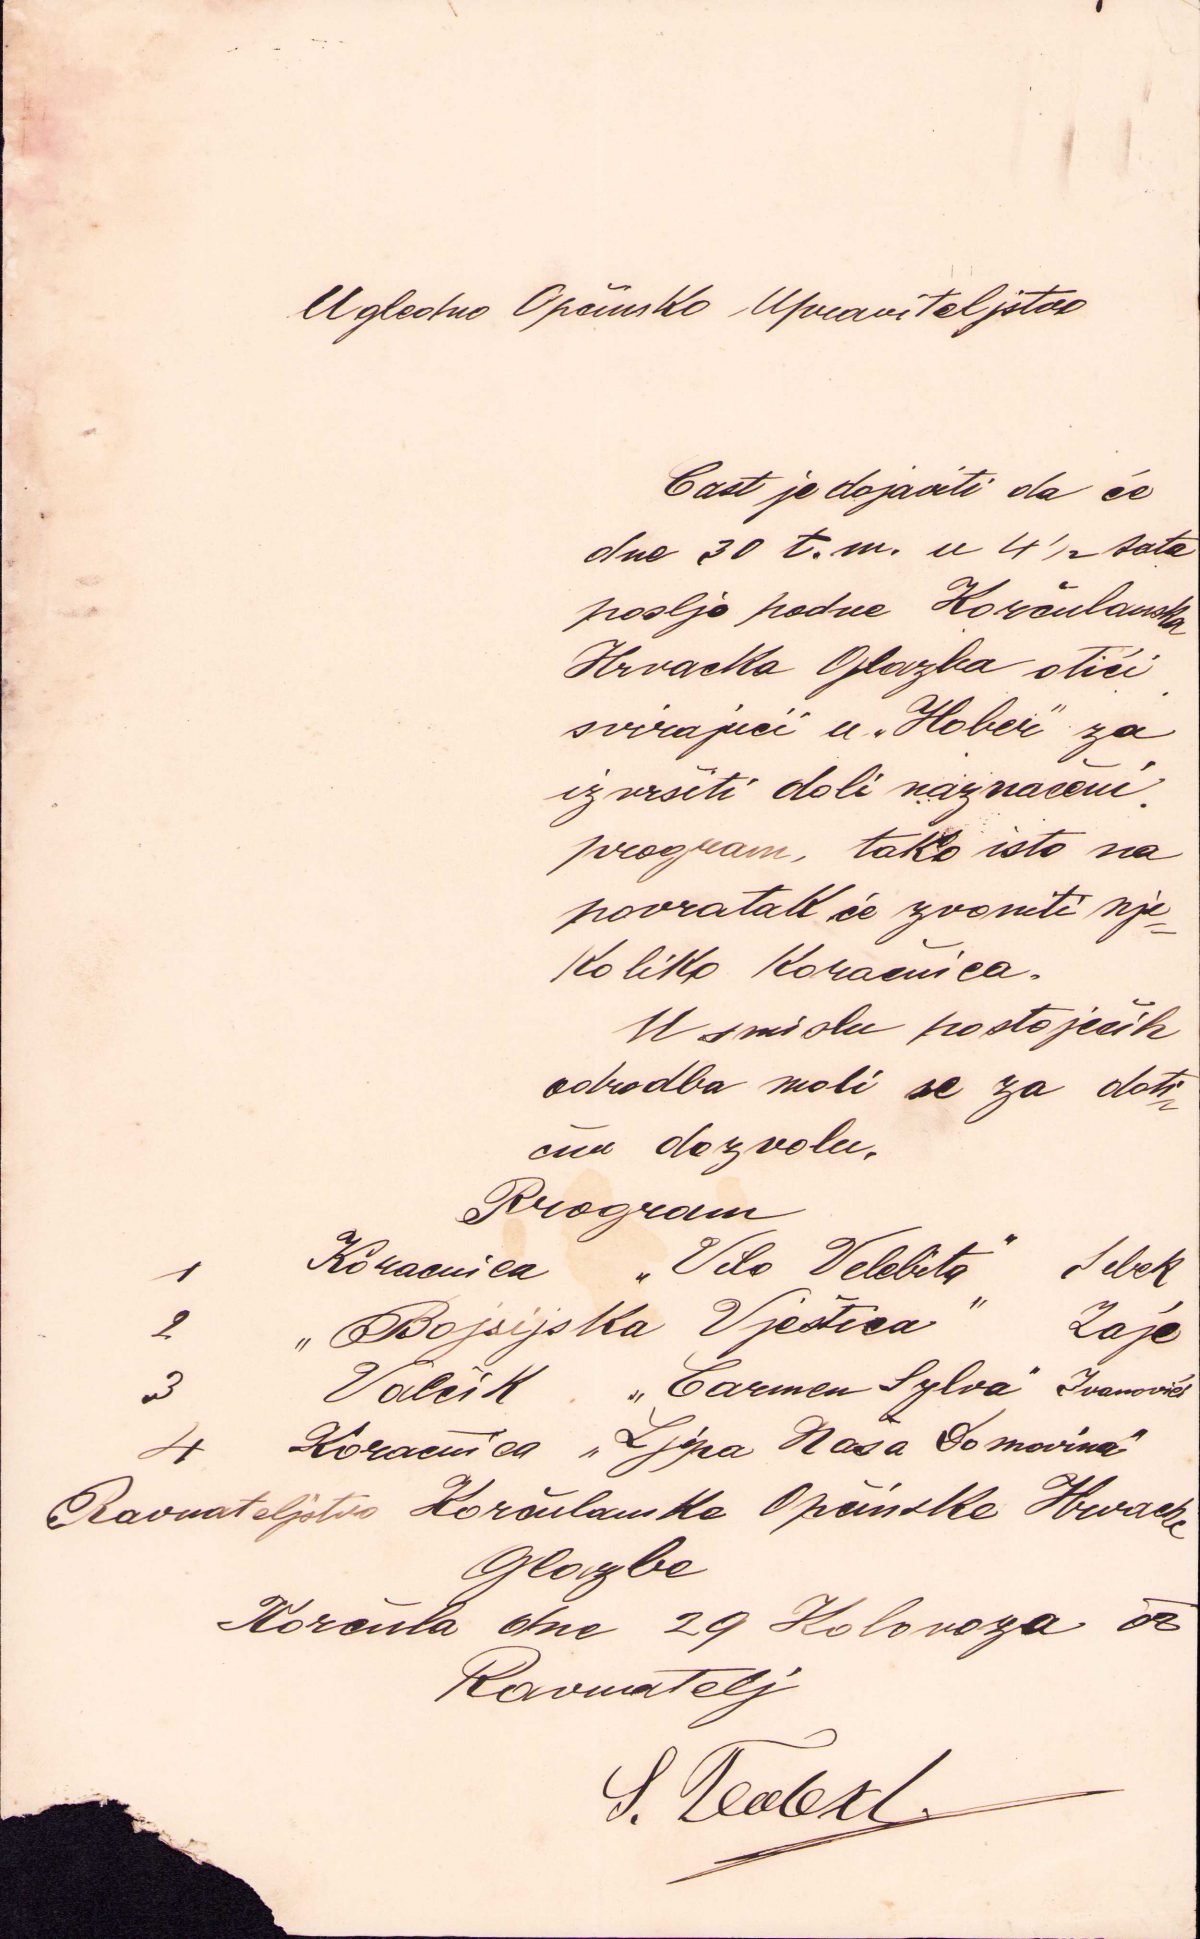 Ugledno Općinsko Upraviteljstvo
Čast je dojaviti da će
dne 30 t.m. u 4 1/2 sata
poslje podne Korčulanska
Hrvacka Glazba otići
svirajući u „Hober" za
izvršiti doli naznačeni
program, tako isto na
povratak će zvoniti nje=
koliko koračnica.
U smislu postoječih
odredba moli se za doti=
čnu dozvolu.
Program
1 Koracnica „Vilo Velebita" Sebek
2 „Bojsijska Vještica" Zajc
3 Valčik „Carmen Sylva" Ivanovići
4 Koračnica „Ljepa Naša Domovina"
Ravnateljstvo Korčulanske Općinske Hrvacke
Glazbe
Korčula dne 29 Kolovoza
Ravnatelj
S.